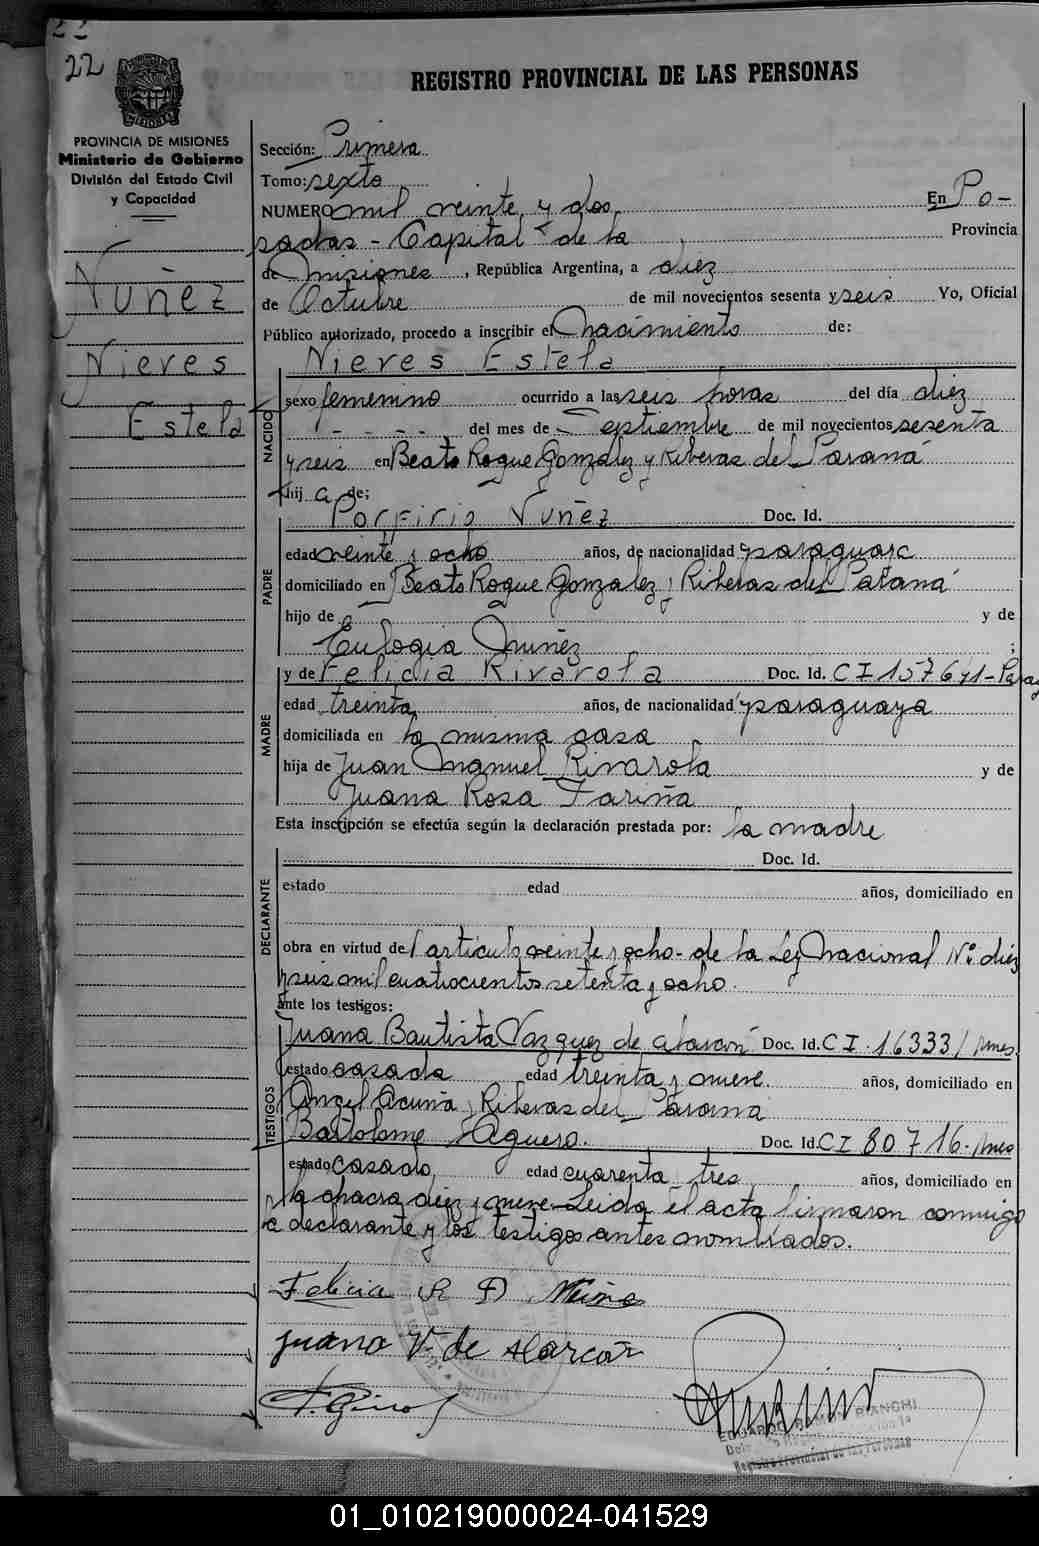 22
REGISTRO PROVINCIAL DE LAS PERSONAS
PROVINCIA DE MISIONES
Ministerio de Gobierno
División del Estado Civil
y Capacidad
Nuñez
Nieves
Estela
Sección: Primera
Tomo: sexto
NUMERO mil veinte y dos En Po-
sadas - Capital de la Provincia
de Misiones, República Argentina, a diez
de Octubre de mil novecientos sesenta y seis Yo, Oficial
Público autorizado, procedo a inscribir el Nacimiento de:
Nieves Estela
NACIDO
sexo femenino ocurrido a las seis horas del día diez
- - - - del mes de Septiembre de mil novecientos sesenta
y seis en Beato Roque Gonzalez y Riberas del Paraná
hij a de;
PADRE
Porfirio Nuñez Doc. Id.
edad veinte y ocho años, de nacionalidad paraguaya
domiciliado en Beato Roque Gonzalez y Riberas del Paraná
hijo de y de
Eulogia Nuñez ;
MADRE
y de Felicia Rivarola Doc. Id. CI 157671-Parag
edad treinta años, de nacionalidad paraguaya
domiciliada en la misma casa
hija de Juan Manuel Rivarola y de
Juana Rosa Fariña
Esta inscripción se efectúa según la declaración prestada por: la madre
DECLARANTE
Doc. Id.
estado edad años, domiciliado en
obra en virtud del articulo veinte y ocho - de la Ley Nacional Nº diez
y seis mil cuatrocientos setenta y ocho.
ante los testigos:
TESTIGOS
Juana Bautista Vazquez de Alarcón Doc. Id. CI. 16333/ Mnes.
estado casada edad treinta y nueve años, domiciliado en
Angel Acuña y Riberas del Paraná
Bartolome Aguero. Doc. Id. CI 80716- Mnes
estado casado edad cuarenta tres años, domiciliado en
la chacra diez y nueve - Leida el acta firmaron conmigo
la declarante y los testigos antes nombrados.
Felicia R D Nuñe
Juana V. de Alarcón
EDGARDO RAMON BIANCHI
Registro Provincial de las Personas
01_010219000024-041529